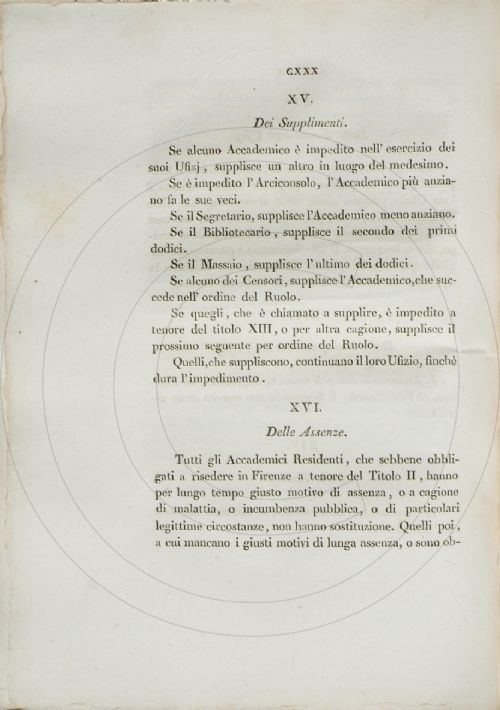 CXXX
XV.
Dei Supplimenti.
Se alcuno Accademico è impedito nell' esercizio dei
suoi Ufizj , supplisce un altro in luogo del medesimo.
Se è impedito l' Arciconsolo, l' Accademico più anzia-
no fa le sue veci.
Se il Segretario, supplisce l'Accademico meno anziano.
Se il Bibliotecario , supplisce il secondo dei primi
dodici.
Se il Massaio , supplisce l' ultimo dei dodici.
Se alcuno dei Censori, supplisce l'Accademico,che suc-
cede nell' ordine del Ruolo.
Se quegli , che è chiamato a supplire, è impedito a
tenore del titolo XIII, o per altra cagione, supplisce il
prossimo seguente per ordine del Ruolo.
Quelli,che suppliscono, continuano il loro Ufizio, finchè
dura l' impedimento .
XVI.
Delle Assenze.
Tutti gli Accademici Residenti , che sebbene obbli-
gati a risedere in Firenze a tenore del Titolo II , hanno
per lungo tempo giusto motivo di assenza , o a cagione
di malattia, o incumbenza pubblica, o di particolari
legittime circostanze, non hanno sostituzione. Quelli poi ,
a cui mancano i giusti motivi di lunga assenza, o sono ob-